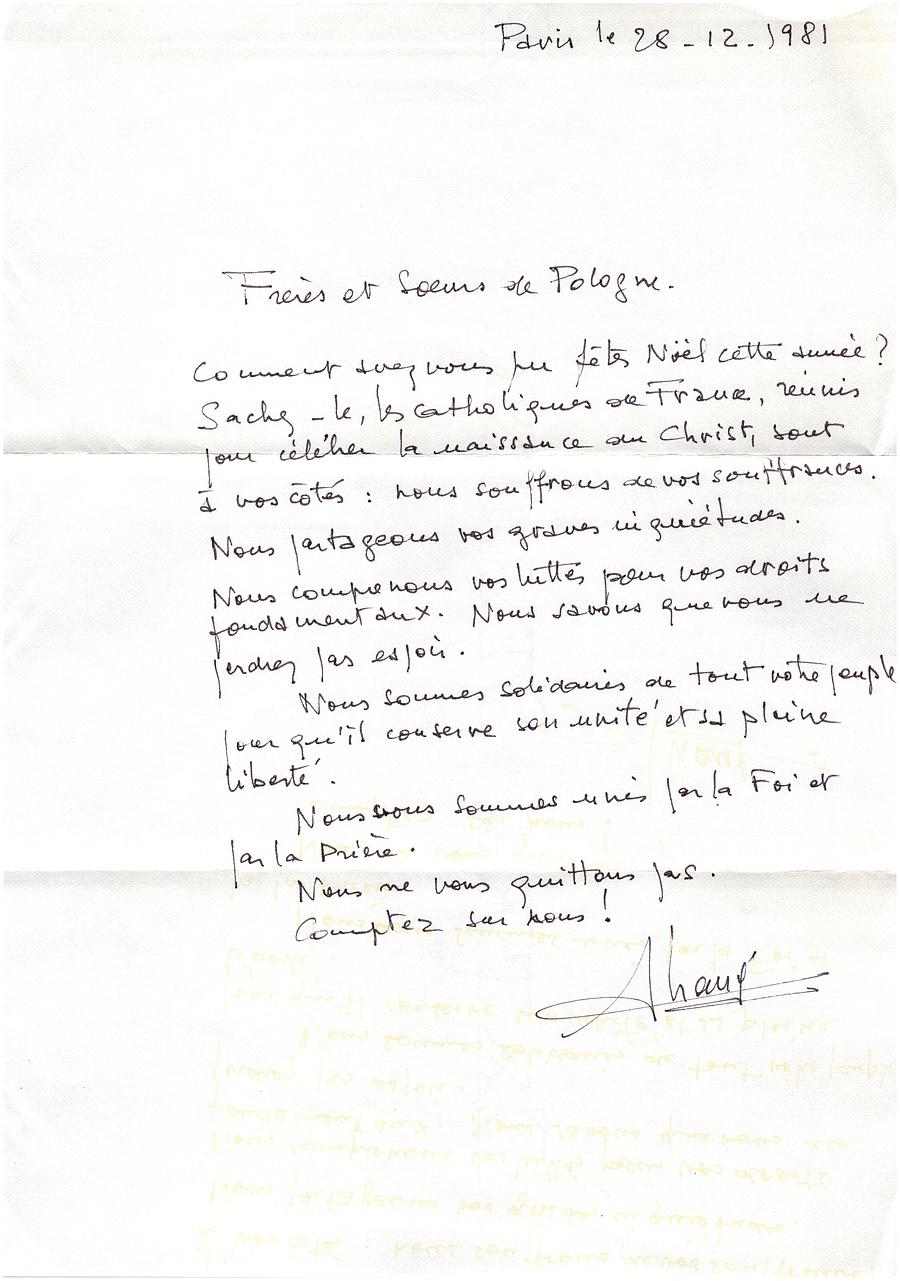 Paris le 28-12-1981
Frères et Soeurs de Pologne.
Comment avez vous pu fêter Noël cette année ?
Sachez-le, les catholiques de France, réunis
pour célébrer la naissance du Christ, sont
à vos côtés : nous souffrons de vos souffrances.
Nous partageons vos graves inquiétudes.
Nous comprenons vos luttes pour vos droits
fondamentaux. Nous savons que vous ne
perdrez pas espoir.
Nous sommes solidaires de tout votre peuple
pour qu'il conserve son unité et sa pleine
liberté.
Nous vous sommes unis par la Foi et
par la Prière.
Nous ne vous quittons pas.
Comptez sur nous !